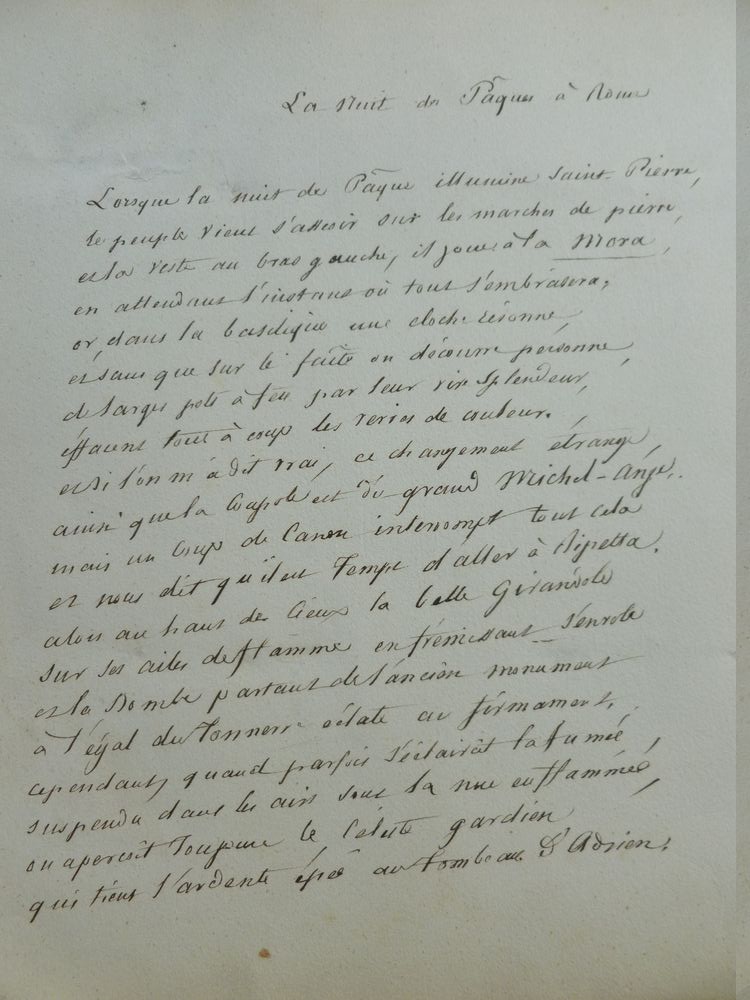 La Nuit des Pâques à Rome
Lorsque la nuit de Pâque illumine Saint-Pierre,
le peuple vient s'asseoir sur les marches de pierre,
et la veste au bras gauche, il joue à la Mora,
en attendant l'instant où tout s'embrasera;
or, dans la basilique une cloche résonne,
et sans que sur le faîte on découvre personne,
de larges pots à feu par leur vive splendeur,
effacent tout à coup les verres de couleur.
et si l'on m'a dit vrai, ce changement étrange,
ainsi que la Coupole est du grand Michel-Ange.
mais un Coup de Canon interrompt tout cela
et nous dit qu'il est Temps d'aller à Ripetta.
alors au haut des Cieux la belle Girandole
sur ses ailes de flamme en frémissant s'envole
et la Bombe partant de l'ancien monument
à l'égal du Tonnerre éclate au firmament,
cependant, quand parfois s'éclaircit la fumée,
suspendu dans les airs sous la nue enflammée,
on aperçoit Toujours le Céleste gardien
qui tient l'ardente épée au Tombeau d'Adrien.